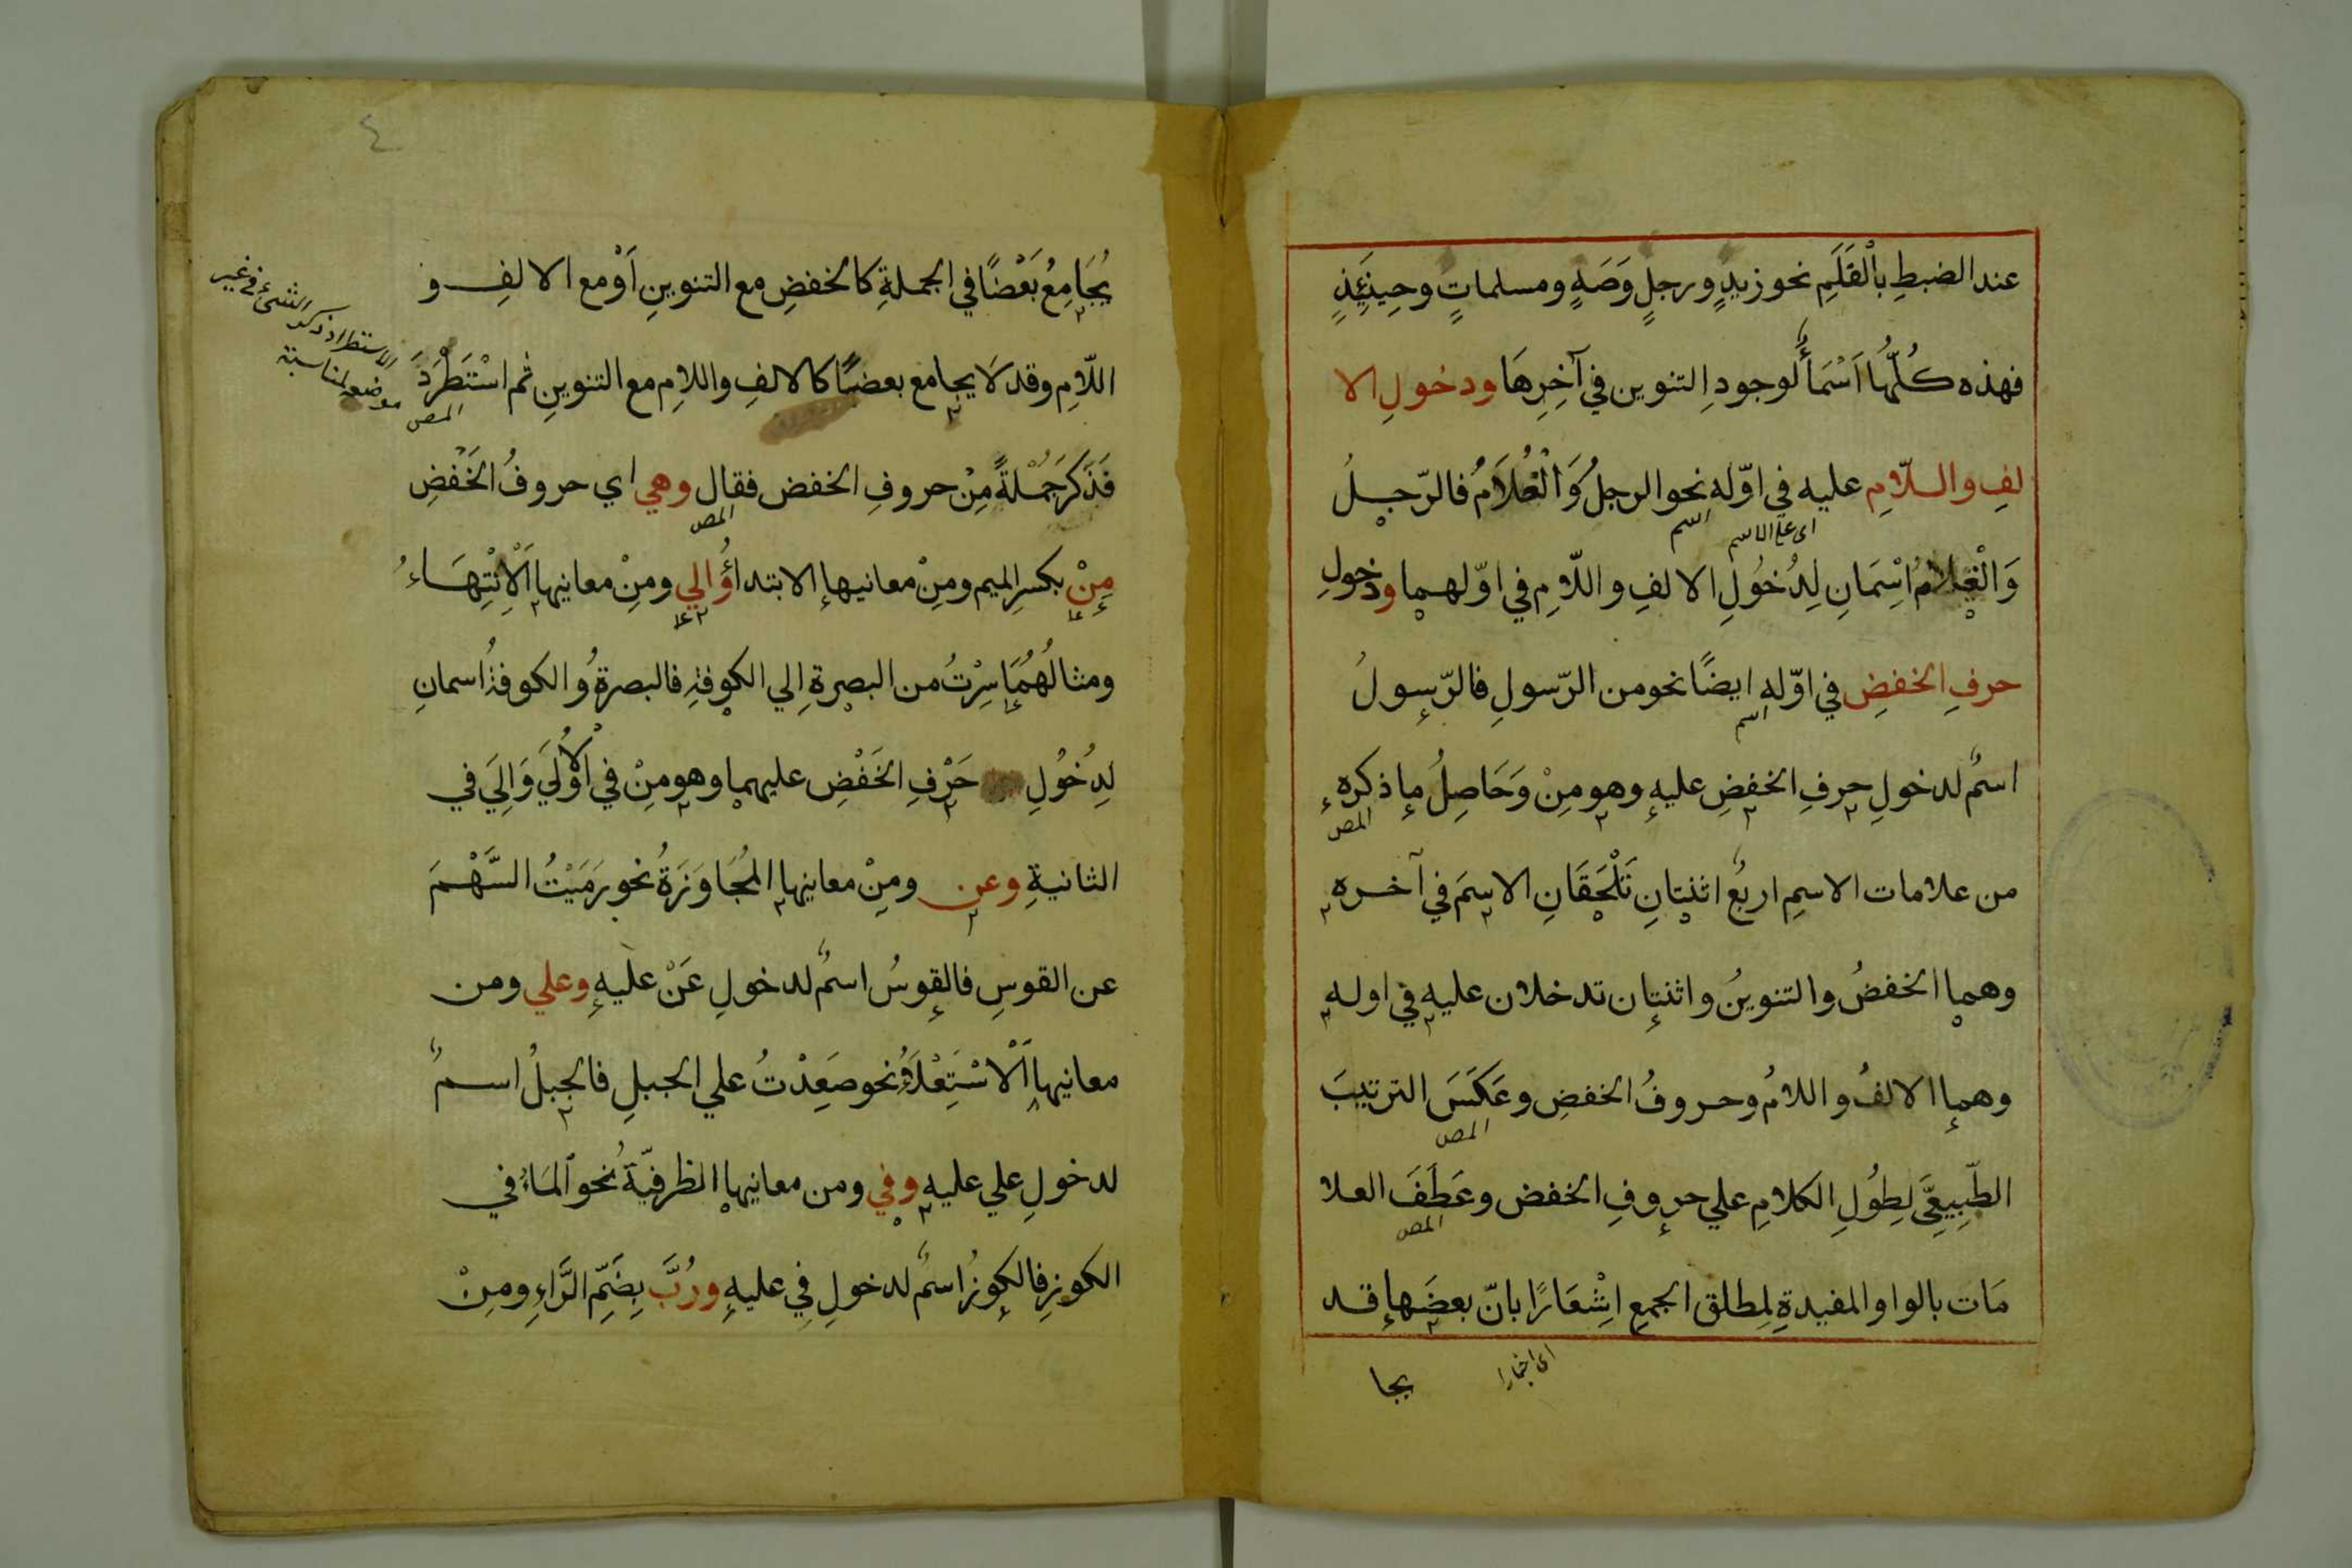 عند الضبطِ بالْقَلَمِ نحو زيدٍ ورجلٍ وَصَهٍ ومسلماتٍ وحِينَئِذٍ
فهذه كُلُّها اَسْمَأٌ لوجودِ التنوين في آخِرِهَا ودخولِ الا
لفِ واللّامِ عليه في اوّله نحو الرجلُ وَالْغُلَامُ فالرّجلُ
اى على الاسم
اسم
وَالْغلامُ اسْمَانِ لِدُخُولِ الالفِ واللّامِ في اوّلهما ودخولِ
حرفِ الخفضِ في اوّله ايضًا نحو من الرّسولِ فالرّسولُ
اسم
اسمٌ لدخولِ حرفِ الخفضِ عليهِ وهو مِنْ وَحَاصِلُ ما ذكره
المص
من علامات الاسمِ اربعٌ اثنتانِ تَلْحَقَانِ الاسمَ في آخره
وهما الخفضُ والتنوينُ واثنتان تدخلان عليه في اوله
وهما الالفُ واللامُ وحروفُ الخفضِ وعَكَسَ الترتيبَ
المص
الطّبِيعِيَّ لِطُولِ الكلامِ علي حروفِ الخفض وعَطَفَ العلا
المص
مَات بالواو المفيدةِ لِمطلق الجمعِ اِشْعَارًا بانّ بعضَها قد
اى اخبارا
يجا
٤
يُجَامِعُ بَعْضًا في الجملةِ كالخفضِ مع التنوينِ اَوْ مع الالفِ و
اللّامِ وقد لَا يجامع بعضًا كالالفِ واللامِ مع التنوينِ ثم اسْتَطْرَدَ
المص
الاستطراد ذكر الشيء في غير
موضعه لمناسبة
فَذَكَرَ جُمْلَةً مِنْ حروفِ الخفض فقال وهي اي حروفُ الخَفْضِ
المص
مِنْ بكسرِ الميم ومِنْ معانيها الابتداؤُ والي ومِنْ معانيها اَلْاِنْتِهَاءُ
ومثالُهُمَا سِرْتُ من البصرةِ الي الكوفةِ فالبصرةُ والكوفةُ اسمانِ
لِدُخُولِ حَرْفِ الخَفْضِ عليهما وهو مِنْ في الْاُولَي وَاِلَي في
الثانيةِ وعن ومِنْ معانيها المُجَاوَزَةُ نحو رَمَيْتُ السَّهْمَ
عن القوسِ فالقوسُ اسمٌ لدخولِ عَنْ عليهِ وعلي ومن
معانيها اَلْاسْتِعْلَاءُ نحو صَعِدْتُ علي الجبلِ فالجبلُ اسمٌ
لدخولِ علي عليه وفي ومن معانيها الظرفيّةُ نحو اَلمَاءُ في
الكوزِ فالكوزُ اسمٌ لدخولِ في عليهِ ورُبَّ بِضَمِّ الرَّاءِ ومِنْ